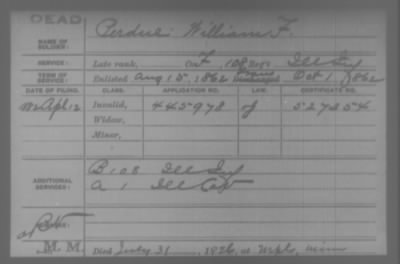 DEAD
NAME OF SOLDIER: Perdue William F.
SERVICE: Late rank, Co. F, 108 Reg't Ill Inf
TERM OF SERVICE: Enlisted Aug 15, 1862 Oct 1, 1862
DATE OF FILING. CLASS. APPLICATION NO. LAW. CERTIFICATE NO.
Apl 12 Invalid, 445978 527354
Widow,
Minor,
ADDITIONAL SERVICES: B 108 Ill Inf
A 1 Ill Cav
M. M. Died July 31, 1926, at Mpls, Minn